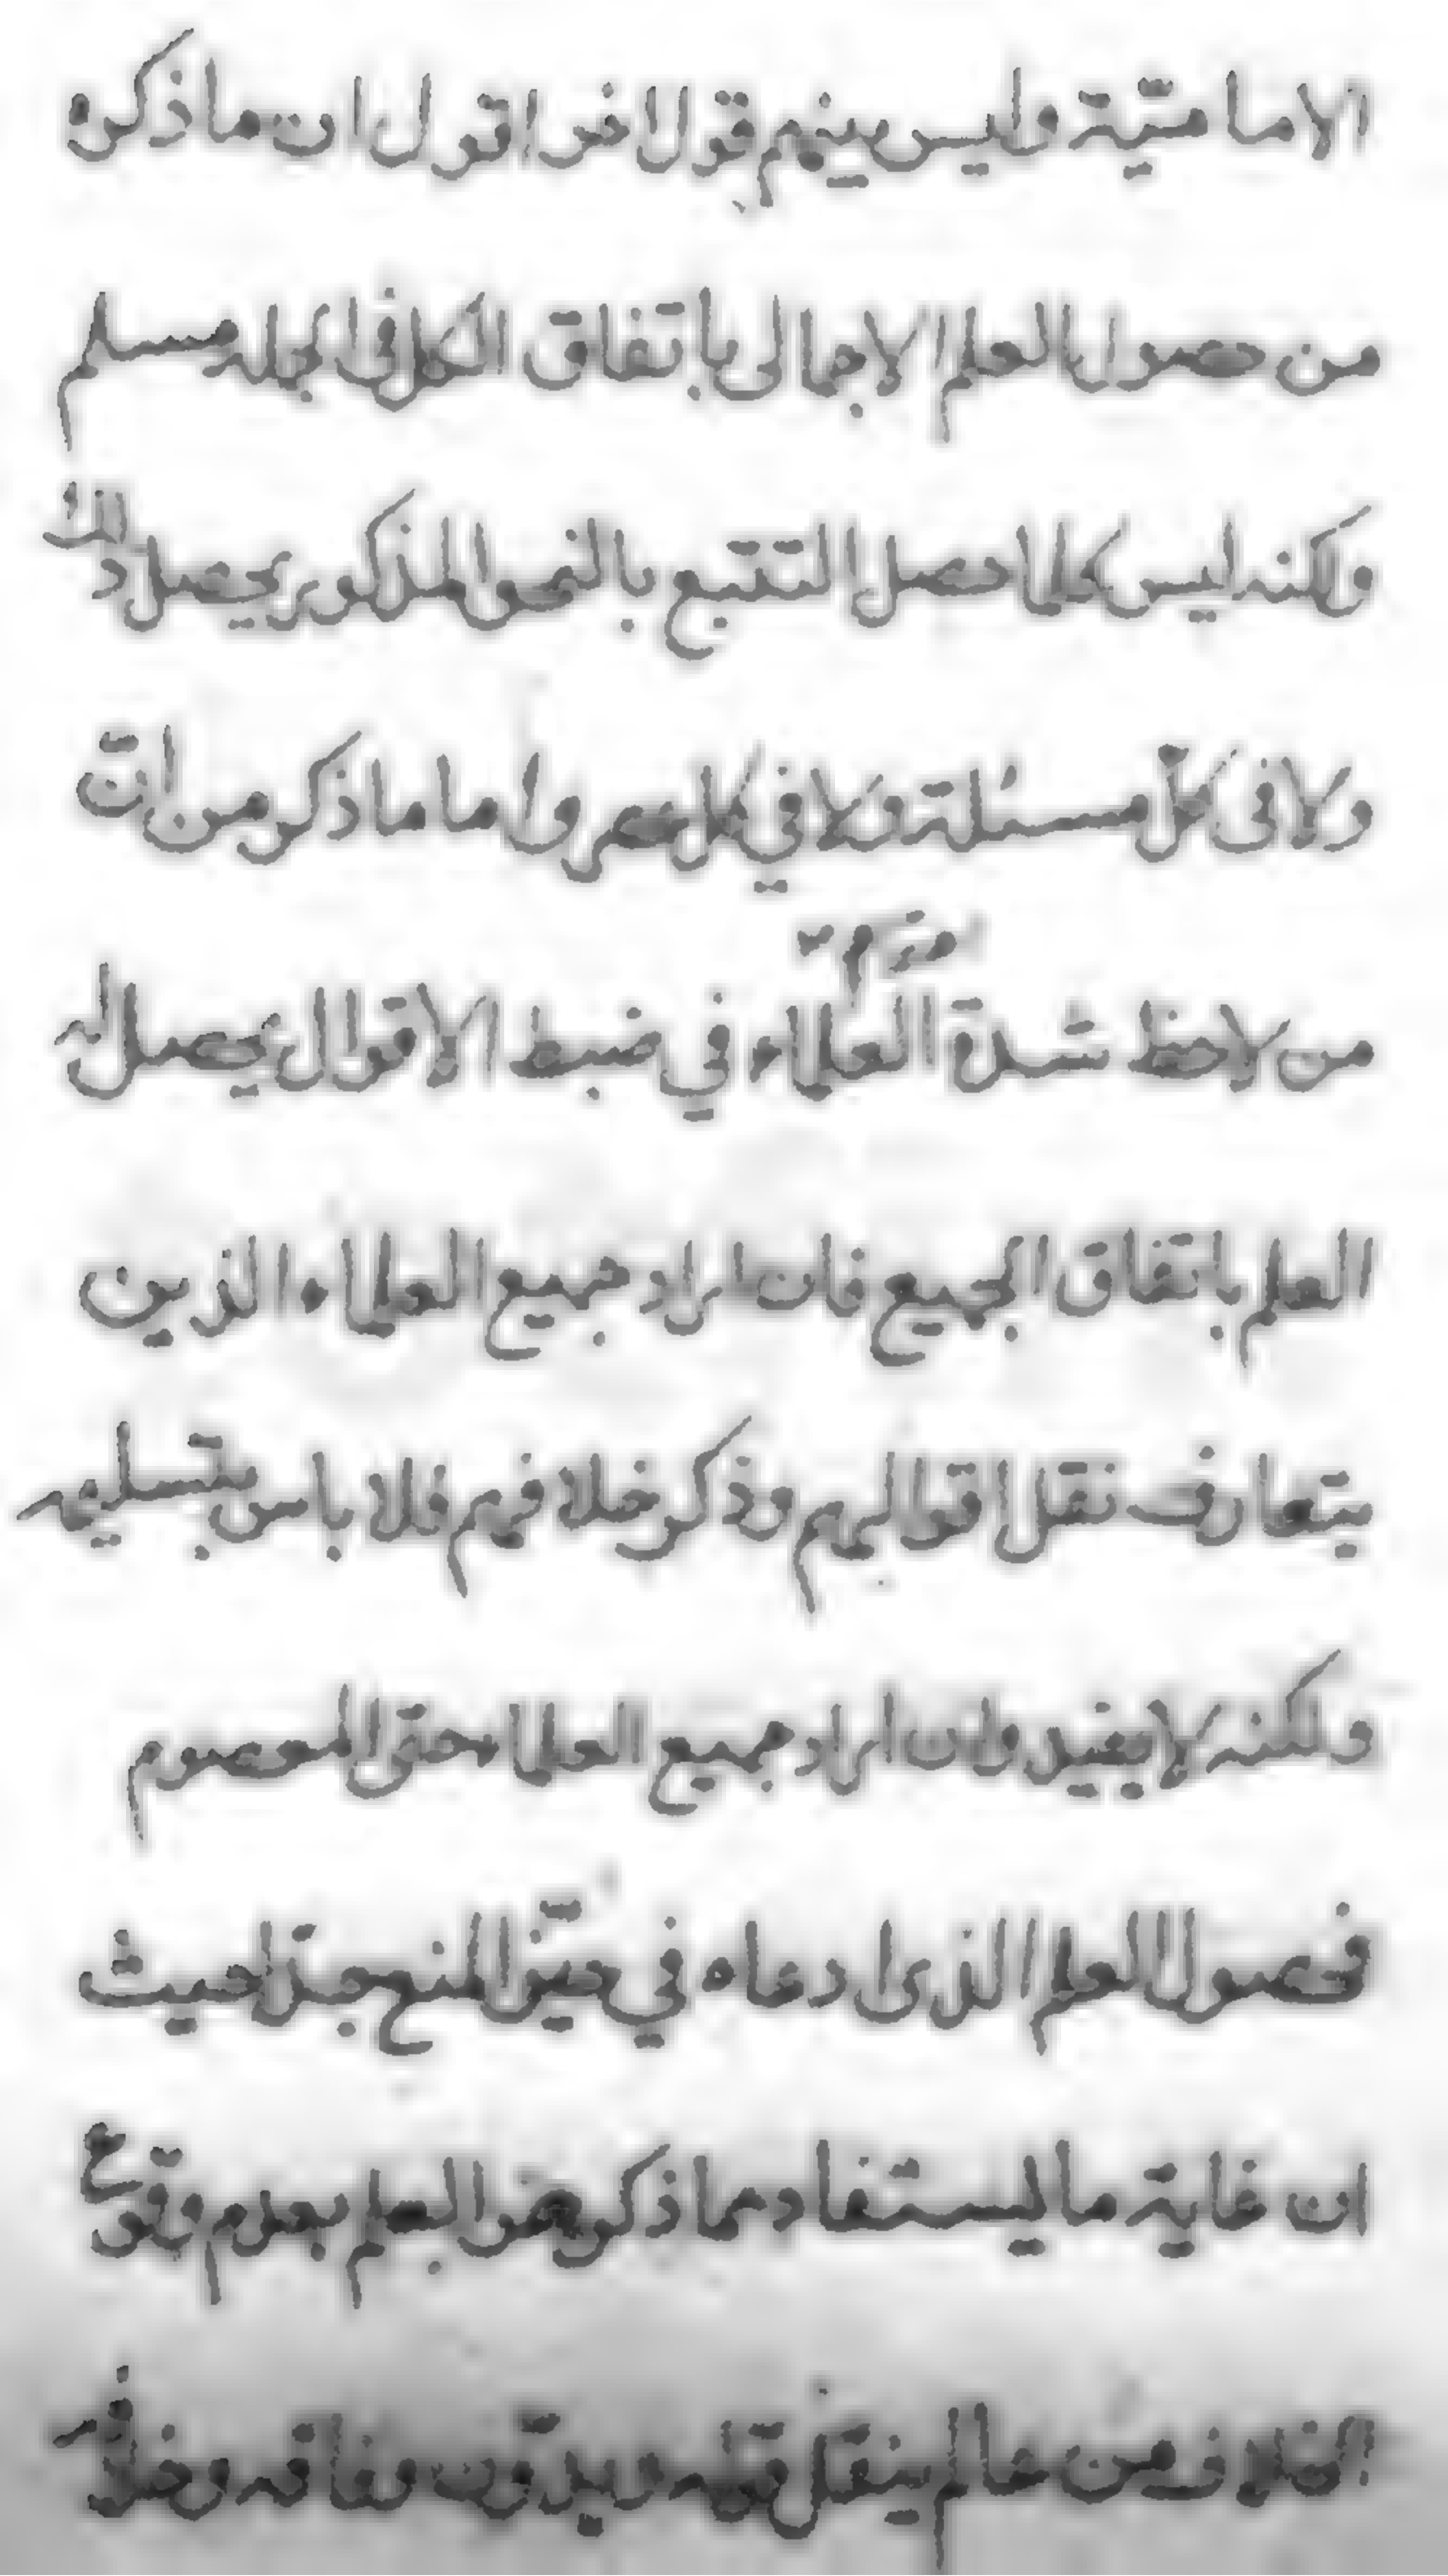 الاماميّة وليس بينهم قول اخر اقول ان ما ذكره
من حصول العلم الاجمالى باتفاق الكل فى الجملة مسلم
ولكنه ليس كلما حصل التتبع بالنحو المذكور يحصل ذلك
ولا فى كلّ مسئلة ولا في كل عصر واما ما ذكر من انّ
من لاحظ شدة العلماء في ضبط الاقوال يحصل له
العلم باتفاق الجميع فان اراد جميع العلماء الذين
يتعارف نقل اقوالهم وذكر خلافهم فلا باس بتسليمه
ولكنه لا يفيد وان اراد جميع العلماء حتى المعصوم
فحصول العلم الذى ادعاه في حيّز المنع جدّا حيث
ان غاية ما ليستفاد مما ذكر هو العلم بعدم وقوع
الخلاف من عالم ينقل قوله ويدوّن وفاقه وخلافه